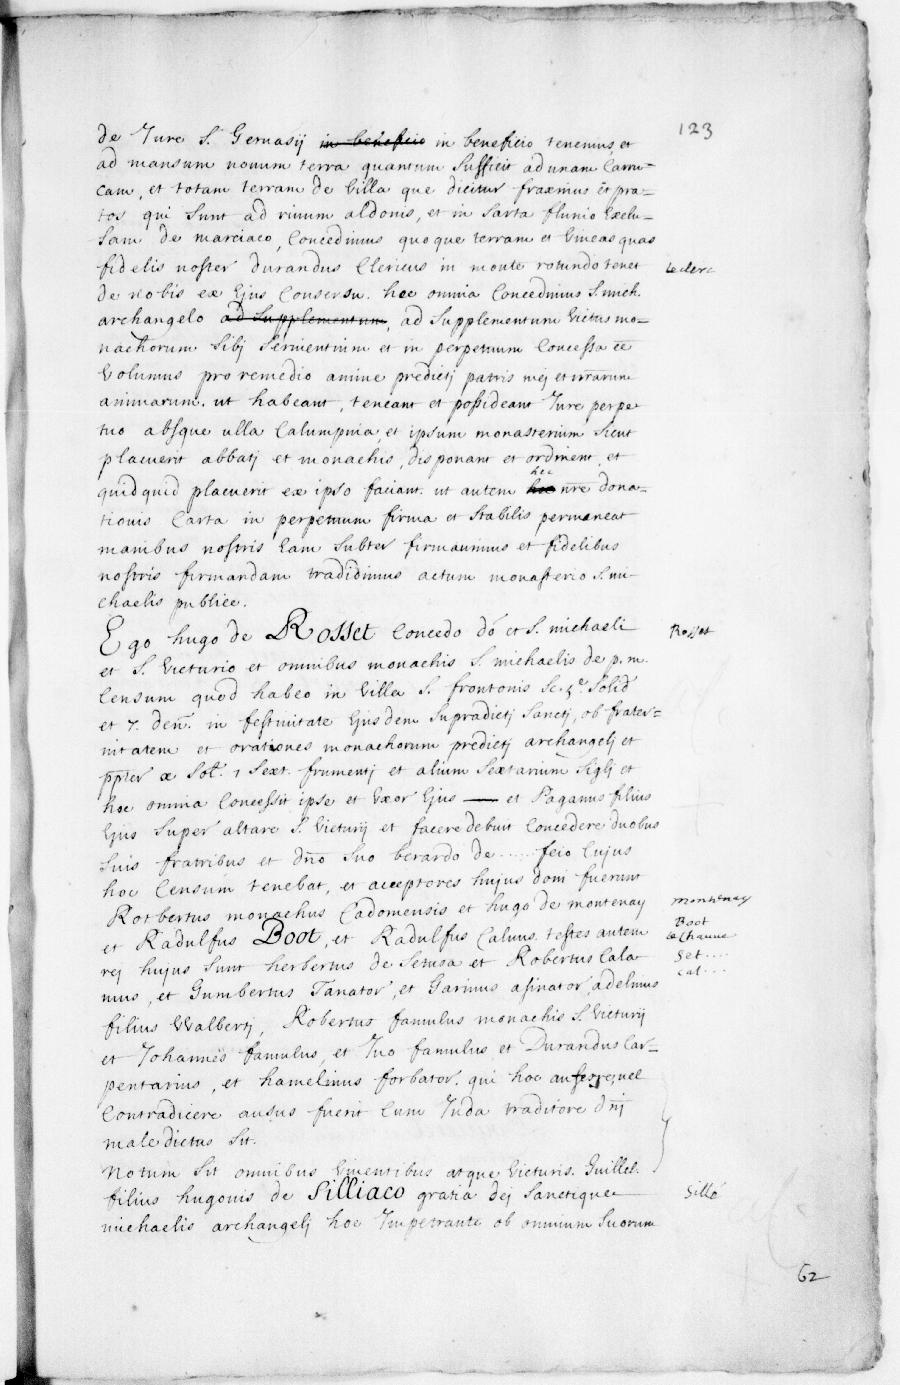 123
de Jure S. Geruasij in beneficio in beneficio tenemus, et
ad mansum nouum terra quantum Sufficit ad unam Carru-
cam, et totam terram de Villa que dicitur fraxinus et pra-
tos qui Sunt ad riuum aldonis, et in Sarta fluuio Exclu-
sam de marciaco, Concedimus quoque terram et Vineas quas
fidelis noster durandus Clericus in monte rotundo tenet
le clerc
de nobis ex Ejus Consensu. hec omnia Concedimus S. mich.
archangelo ad Supplementum, ad Supplementum Victus mo-
nachorum Sibj Seruientium et in perpetuum Concessa eē
Volumus pro remedio anime predictj patris mej et nrarum
animarum. ut habeant, teneant et possideant Jure perpe
tuo absque ulla Calumpnia, et ipsum monasterium Sicut
placuerit abbatj et monachis, disponant et ordinent, et
quidquid placuerit ex ipso faciant. ut autem hec nr̄e dona-
tionis Carta in perpetuum firma et Stabilis permaneat
manibus nostris Eam Subter firmauimus et fidelibus
nostris firmandam tradidimus actum monasterio S. mi-
chaelis publice.
Ego hugo de Rosset Concedo dō et S. michaeli
Rosset
et S. Victurio et omnibus monachis S. michaelis de p. m.
Censum quod habeo in Villa S. frontonis Sc. 5e. Solid
et 7. deñ. in festiuitate Ejusdem Supradictj Sanctj, ob frater-
nitatem et orationes monachorum predictj archangelj et
pp̄ter x Sol. 1 Sext. frumentj et alium Sextarium Siglj et
hoc omnia Concessit ipse et Vxor Ejus — et Paganus filius
Ejus Super altare S. Victurij et facere debuit Concedere duobus
Suis fratribus et dn̄o Suo berardo de ..... feio Cujus
hoc Censum tenebat, et acceptores hujus doni fuerunt
Rotbertus monachus Cadomensis et hugo de montenay
montenay
et Radulfus Boot, et Radulfus Caluus. testes autem
Boot
le Chauue
rej hujus Sunt herbertus de Setusa et Robertus Cala
Set....
mus, et Gumbertus Tanator, et Garinus asinator, adelmus
cal...
filius Walbertj, Robertus famulus monachis S. Victurij
et Johannes famulus, et Juo famulus et Durandus Car-
pentarius, et hamelinus forbator. qui hoc auferre, uel
Contradicere ausus fuerit Cum Juda traditore dn̄j
maledictus Sit.
Notum Sit omnibus Viuentibus atque Victuris. Guillel.
filius hugonis de Silliaco gratia dej Sanctique
Sillé
michaelis archangelj hoc Impetrante ob omnium Suorum
62